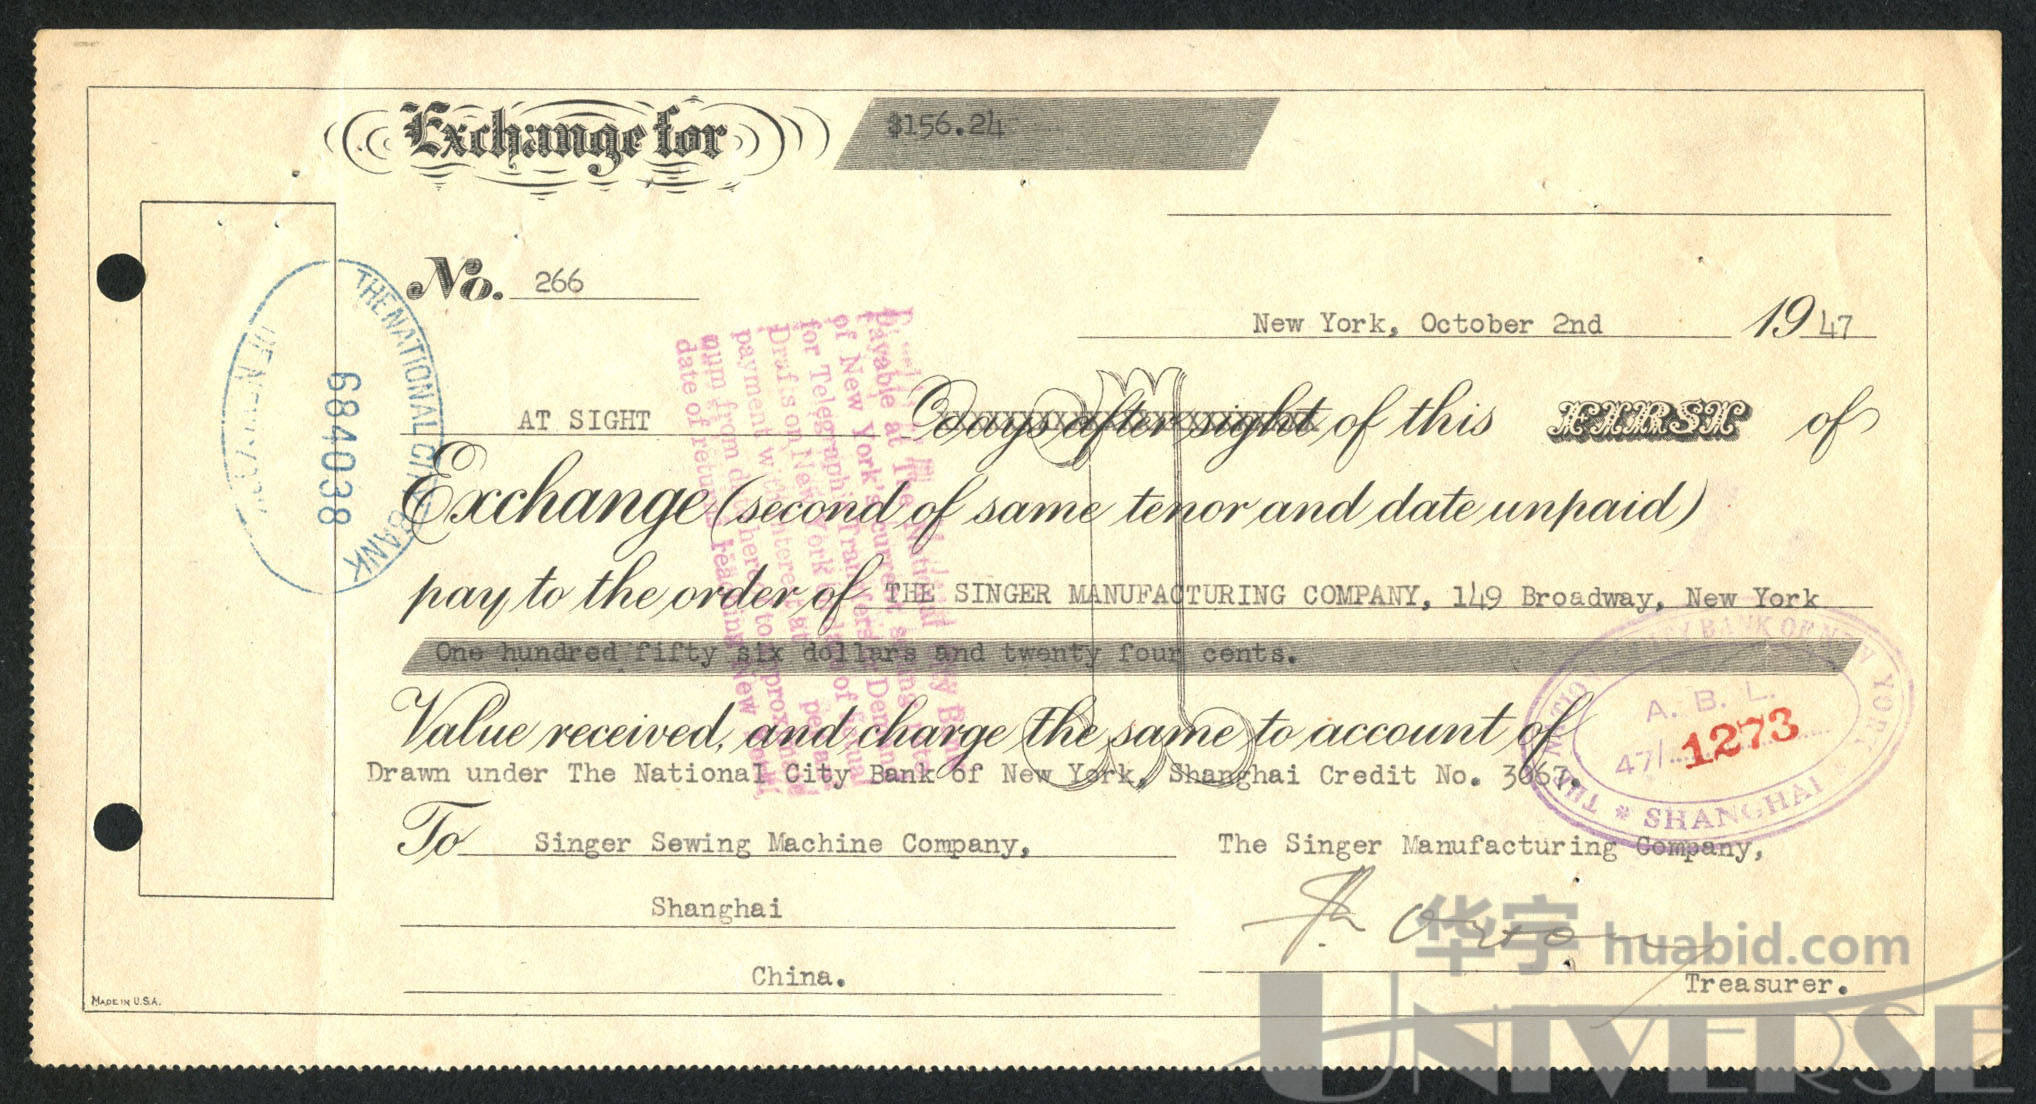 Exchange for $156.24
No. 266
New York, October 2nd 1947
AT SIGHT Days after sight of this FIRST of
Exchange (second of same tenor and date unpaid)
pay to the order of THE SINGER MANUFACTURING COMPANY, 149 Broadway, New York
One hundred fifty six dollars and twenty four cents.
Value received, and charge the same to account of
Drawn under The National City Bank of New York, Shanghai Credit No. 3067.
To Singer Sewing Machine Company,
Shanghai
China.
The Singer Manufacturing Company,
Treasurer.
MADE IN U.S.A.
THE NATIONAL CITY BANK
684038
OF NEW YORK
payable at The National City Bank
of New York's current selling rate
for Telegraphic Transfers
Drafts on New York
payment with interest at per an-
num from date hereof to approximate
date of returns reaching New York
THE NATIONAL CITY BANK OF NEW YORK
A. B. L.
47/ 1273
* SHANGHAI *
华宇 huabid.com
UNIVERSE